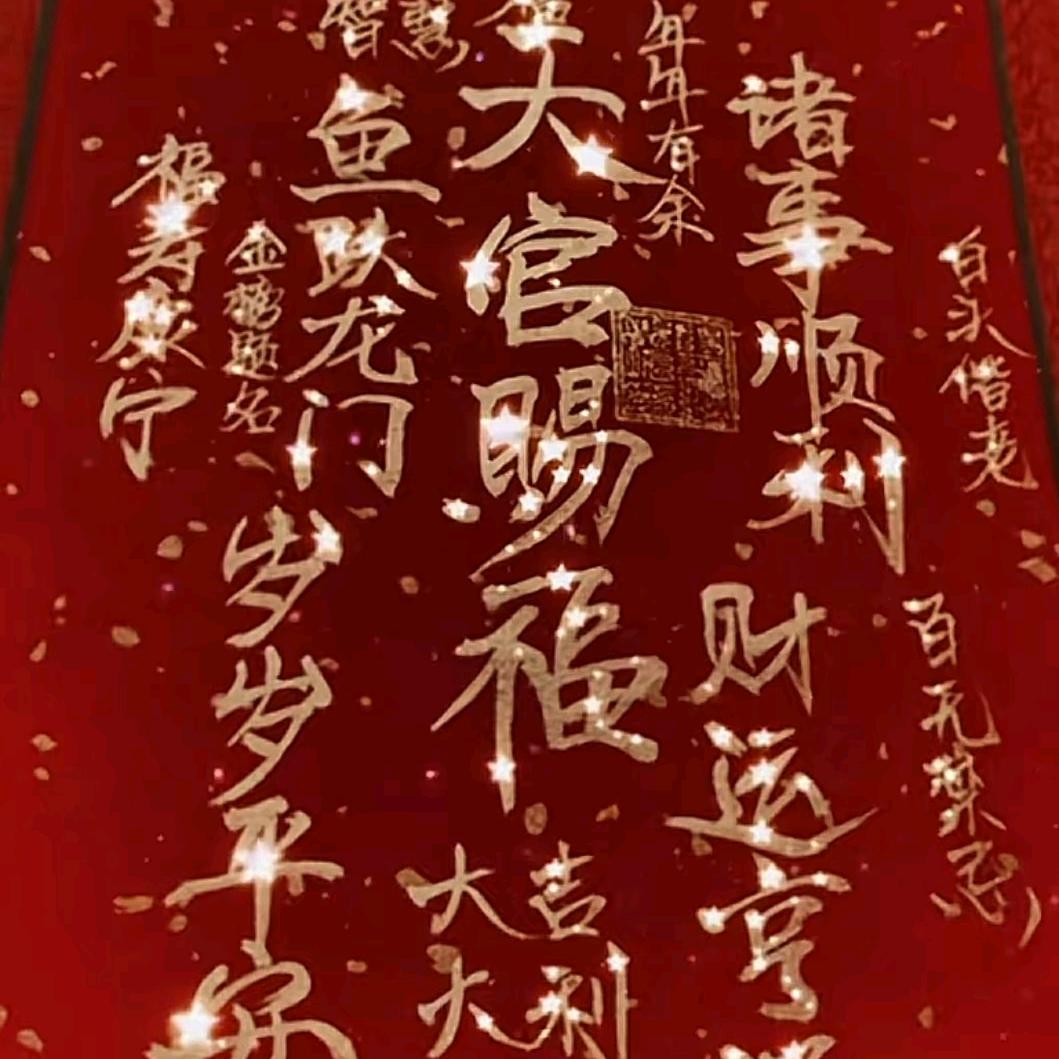 白头偕老
百无禁忌
诸事顺利
财运亨
年年有余
大官赐福
大吉
大利
智慧
鱼跃龙门
岁岁平安
金榜题名
福寿康宁